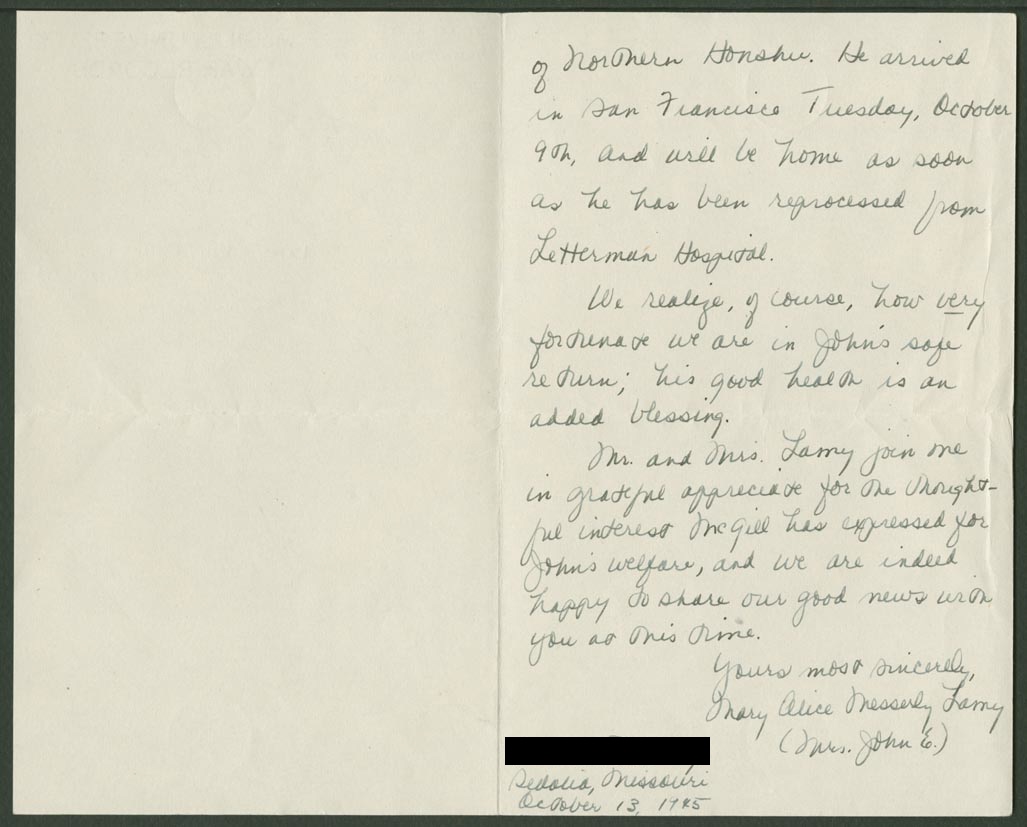 of Northern Honshu. He arrived
in San Francisco Tuesday, October
9th, and will be home as soon
as he has been reprocessed from
Letterman Hospital.
We realize, of course, how very
fortunate we are in John's safe
return; his good health is an
added blessing.
Mr. and Mrs. Lamy join me
in grateful appreciate for the thought-
ful interest McGill has expressed for
John's welfare, and we are indeed
happy to share our good news with
you at this time.
Yours most sincerely,
Mary Alice Messerly Lamy
(Mrs. John E.)
Sedalia, Missouri
October 13, 1945